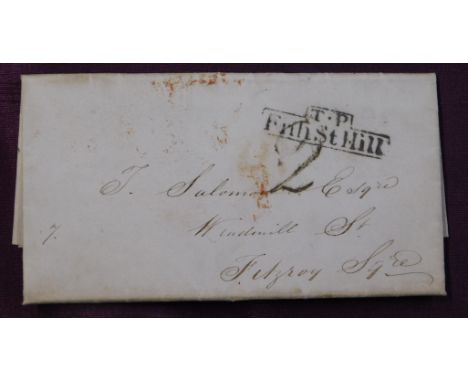 T.P
Frith St Hill
2
T. Salomons Esqre
7.
Windmill St.
Fitzroy Sqre